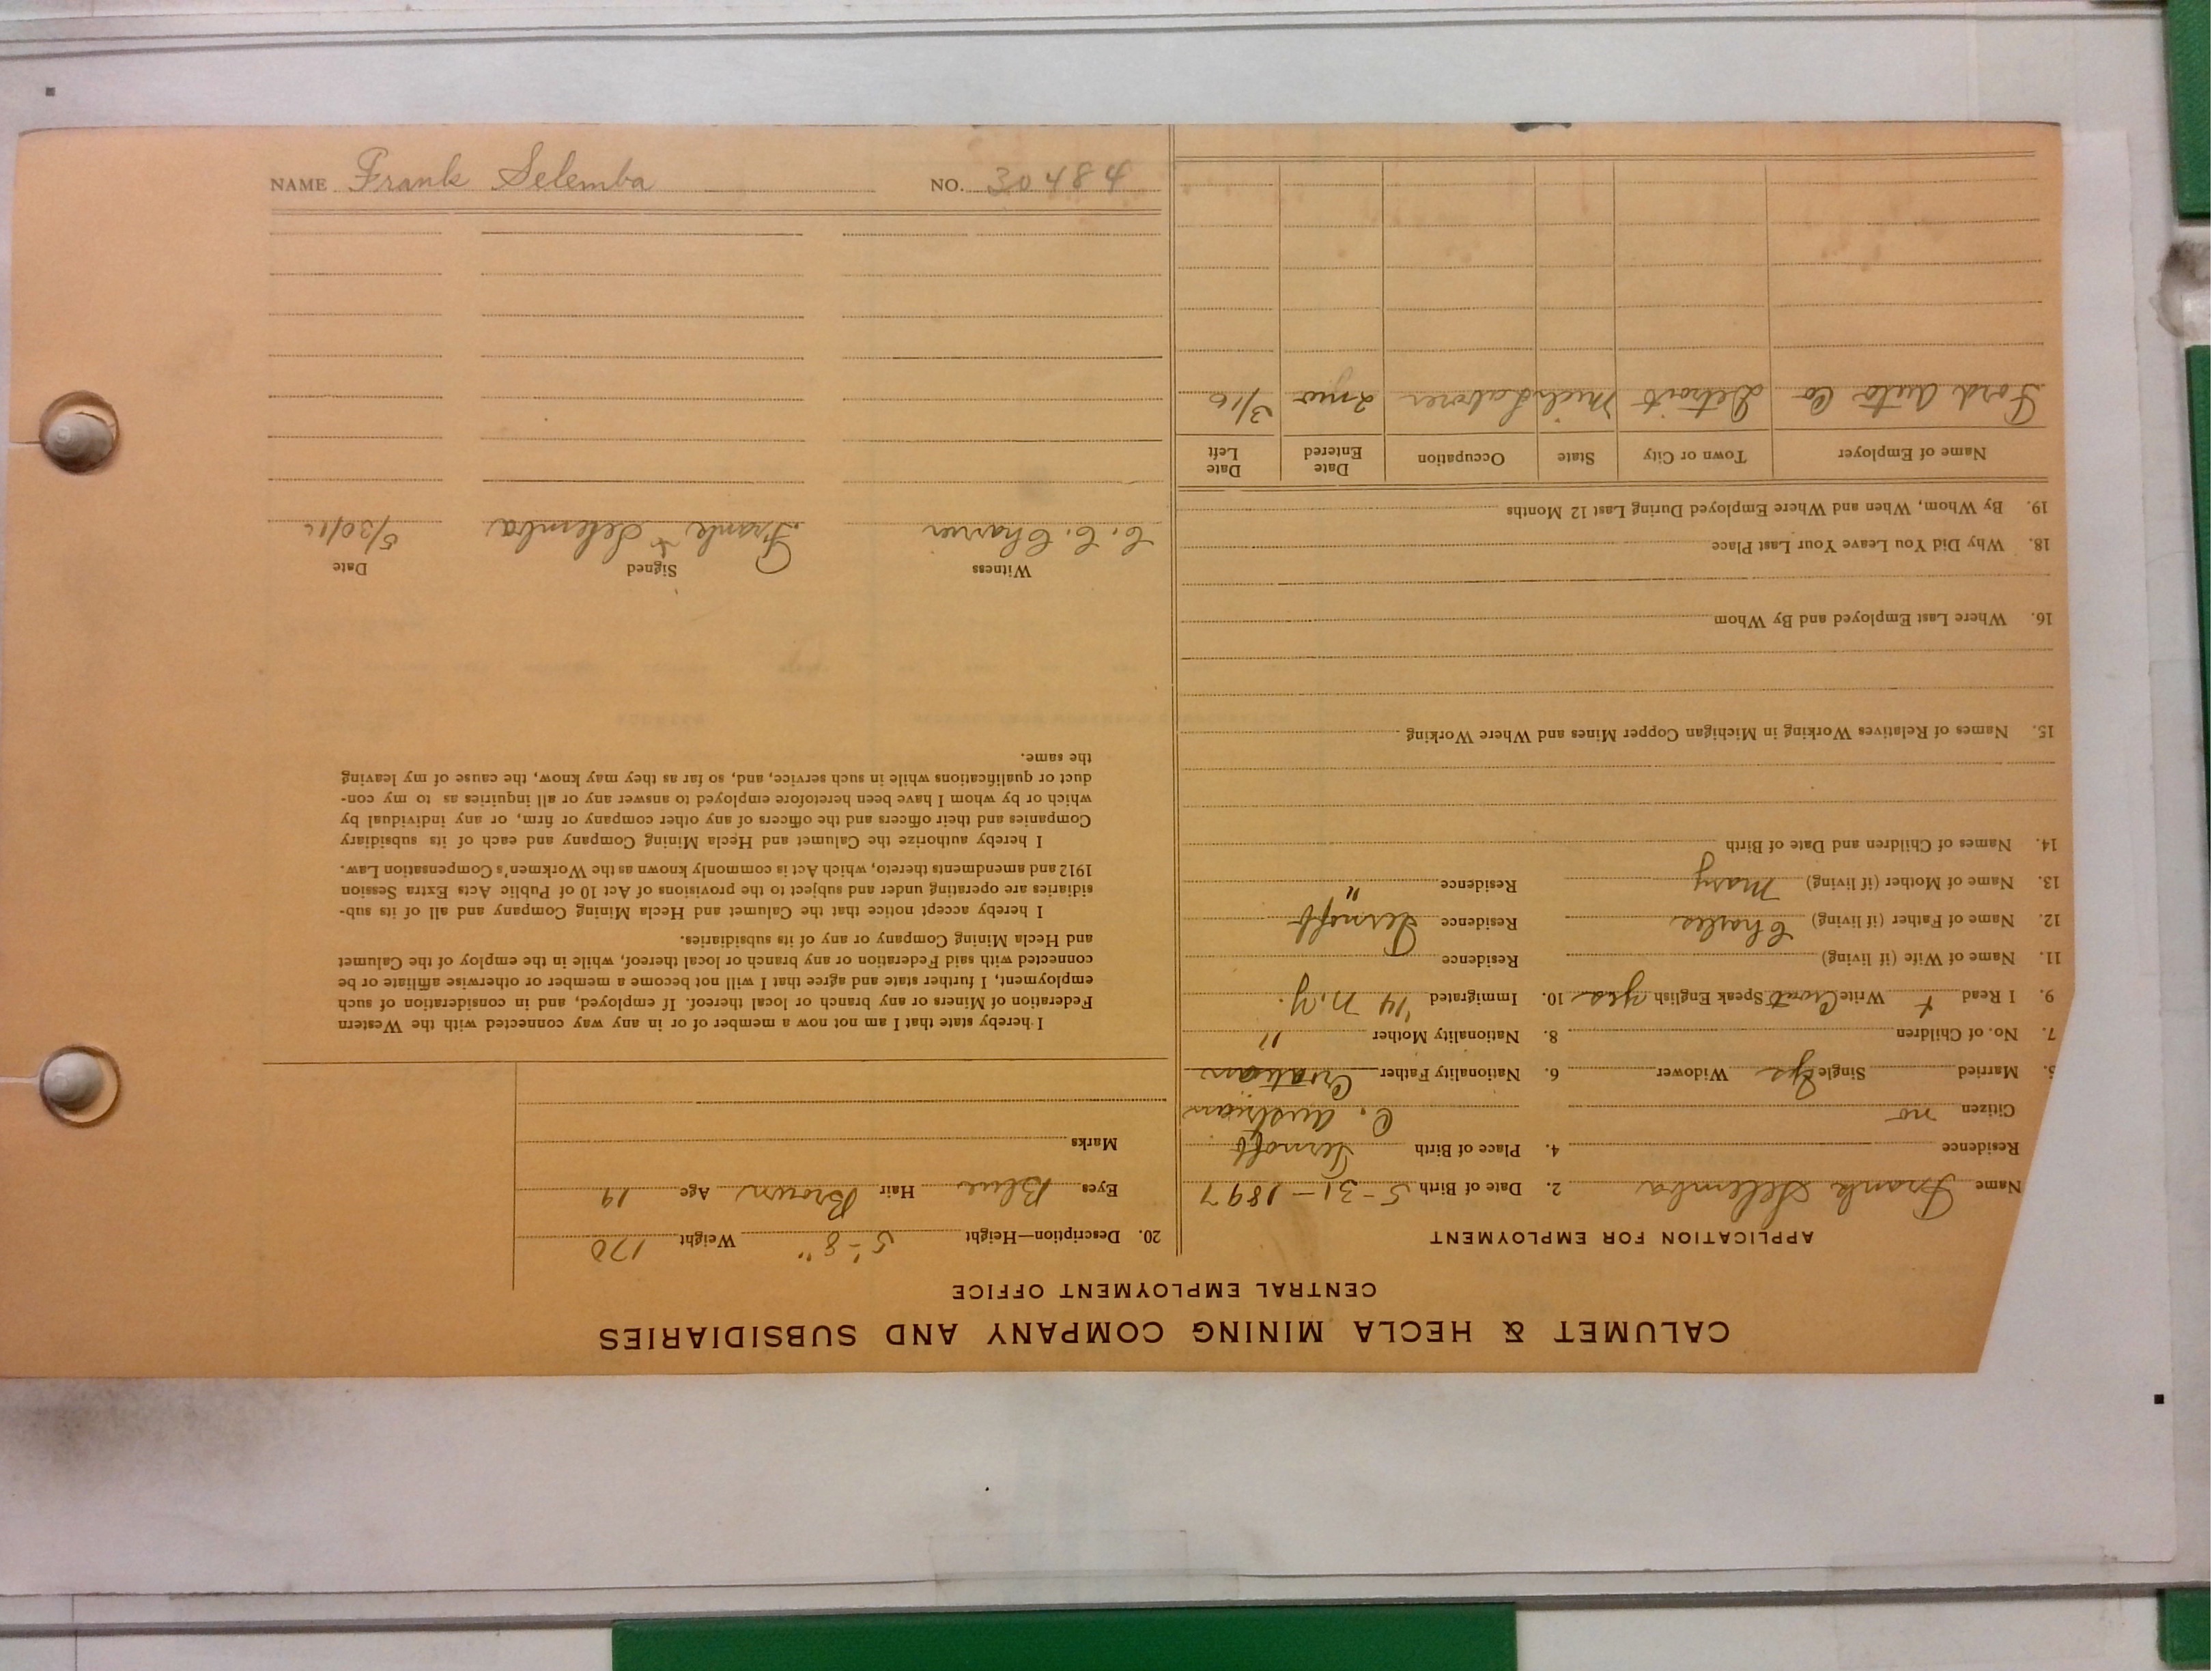 NAME Frank Selemba NO. 30484
CALUMET & HECLA MINING COMPANY AND SUBSIDIARIES
CENTRAL EMPLOYMENT OFFICE
APPLICATION FOR EMPLOYMENT
Name Frank Selemba 2. Date of Birth 5-31-1897
Residence 4. Place of Birth
Citizen no C. Austrian
5. Married Single Yes Widower 6. Nationality Father Croatian
7. No. of Children 8. Nationality Mother "
9. I Read + Write Croat Speak English yes 10. Immigrated '14 N.Y.
11. Name of Wife (if living) Residence
12. Name of Father (if living) Charles Residence
13. Name of Mother (if living) Mary Residence "
14. Names of Children and Date of Birth
15. Names of Relatives Working in Michigan Copper Mines and Where Working
16. Where Last Employed and By Whom
18. Why Did You Leave Your Last Place
19. By Whom, When and Where Employed During Last 12 Months
Name of Employer Town or City State Occupation Date Entered Date Left
Ford Auto Co Detroit Mich Laborer 2 mo 3/16
20. Description—Height 5'-8" Weight 170
Eyes Blue Hair Brown Age 19
Marks
I hereby state that I am not now a member of or in any way connected with the Western
Federation of Miners or any branch or local thereof. If employed, and in consideration of such
employment, I further state and agree that I will not become a member or otherwise affiliate or be
connected with said Federation or any branch or local thereof, while in the employ of the Calumet
and Hecla Mining Company or any of its subsidiaries.
I hereby accept notice that the Calumet and Hecla Mining Company and all of its sub-
sidiaries are operating under and subject to the provisions of Act 10 of Public Acts Extra Session
1912 and amendments thereto, which Act is commonly known as the Workmen's Compensation Law.
I hereby authorize the Calumet and Hecla Mining Company and each of its subsidiary
Companies and their officers and the officers of any other company or firm, or any individual by
which or by whom I have been heretofore employed to answer any or all inquiries as to my con-
duct or qualifications while in such service, and, so far as they may know, the cause of my leaving
the same.
Witness Signed Date
C. C. Frank + Selemba 5/30/16